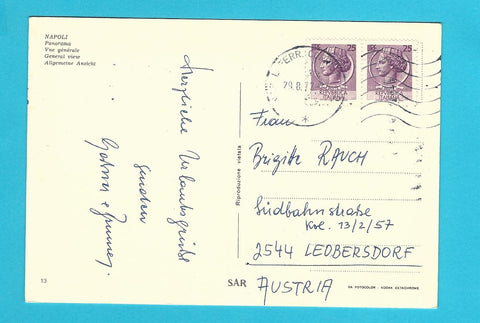 NAPOLI
Panorama
Vue générale
General view
Allgemeine Ansicht
Herzliche Urlaubsgrüße
senden
13
SAR
Riproduzione vietata
FERR.
29.8.7
25
25
Frau
Brigitte RAUCH
Südbahnstraße
13/2/57
2544 LEOBERSDORF
AUSTRIA
DA FOTOCOLOR - KODAK EKTACHROME